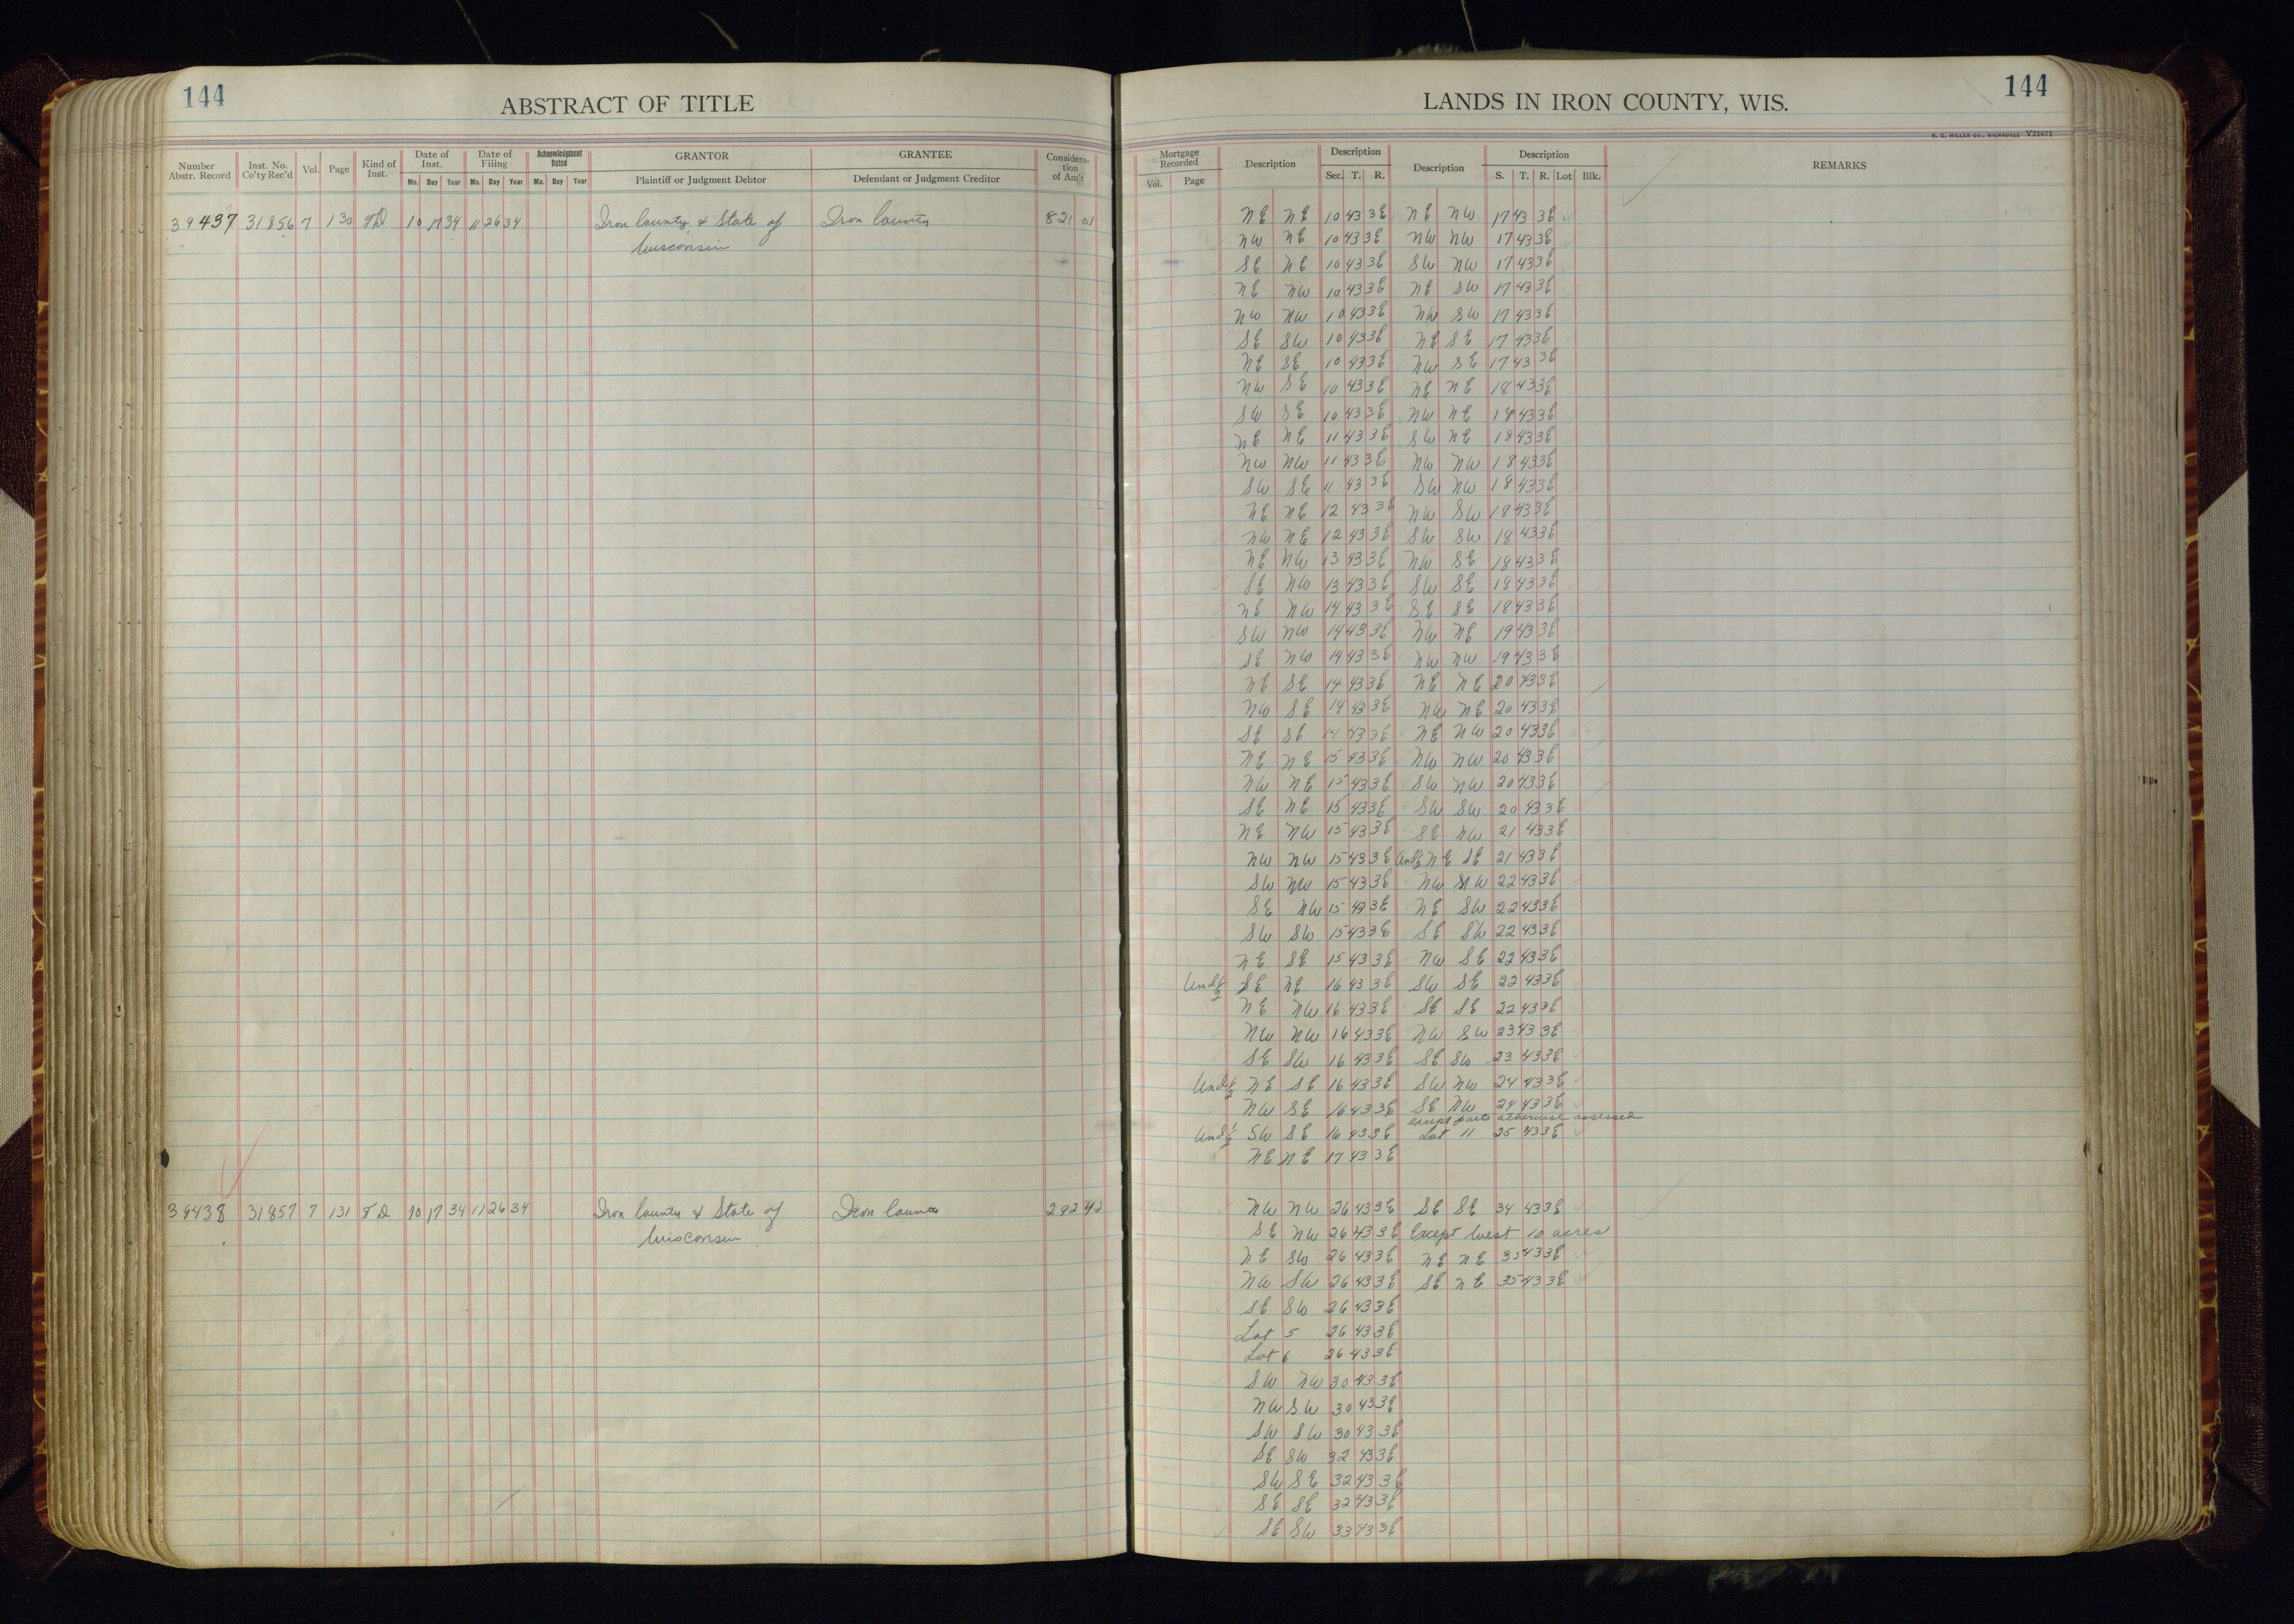 144
ABSTRACT OF TITLE
Number Abstr. Record Inst. No. Co'ty Rec'd Vol. Page Kind of Inst. Date of Inst. Mo. Day Year Date of Filing Mo. Day Year Acknowledgment Dated Mo. Day Year GRANTOR Plaintiff or Judgment Debtor GRANTEE Defendant or Judgment Creditor Considera-tion of Am't
39437 31856 7 130 TD 10 17 34 11 26 34 Iron County & State of Iron County 821 01
Wisconsin
39438 31857 7 131 TD 10 17 34 11 26 34 Iron County & State of Iron County 292 42
Wisconsin
LANDS IN IRON COUNTY, WIS.
144
H. C. MILLER CO., MILWAUKEE Y21671
Mortgage Recorded Vol. Page Description Description Sec. T. R. Description Description S. T. R. Lot Blk. REMARKS
NE NE 10 43 3E NE NW 17 43 3E
NW NE 10 43 3E NW NW 17 43 3E
SE NE 10 43 3E SW NW 17 43 3E
NE NW 10 43 3E NE SW 17 43 3E
NW NW 10 43 3E NW SW 17 43 3E
SE SW 10 43 3E NE SE 17 43 3E
NE SE 10 43 3E NW SE 17 43 3E
NW SE 10 43 3E NE NE 18 43 3E
SW SE 10 43 3E NW NE 18 43 3E
NE NE 11 43 3E SW NE 18 43 3E
NW NW 11 43 3E NW NW 18 43 3E
SW SE 11 43 3E SW NW 18 43 3E
NE NE 12 43 3E NW SW 18 43 3E
NW NE 12 43 3E SW SW 18 43 3E
NE NW 13 43 3E NW SE 18 43 3E
SE NW 13 43 3E SW SE 18 43 3E
NE NW 14 43 3E SE SE 18 43 3E
SW NW 14 43 3E NW NE 19 43 3E
SE NW 14 43 3E NW NW 19 43 3E
NE SE 14 43 3E NE NE 20 43 3E
NW SE 14 43 3E NW NE 20 43 3E
SE SE 14 43 3E NE NW 20 43 3E
NE NE 15 43 3E NW NW 20 43 3E
NW NE 15 43 3E SW NW 20 43 3E
SE NE 15 43 3E SW SW 20 43 3E
NE NW 15 43 3E SE NW 21 43 3E
NW NW 15 43 3E Und ½ NE SE 21 43 3E
SW NW 15 43 3E NW NW 22 43 3E
SE NW 15 43 3E NE SW 22 43 3E
SW SW 15 43 3E SE SW 22 43 3E
NE SE 15 43 3E NW SE 22 43 3E
Und ½ SE NE 16 43 3E SW SE 22 43 3E
NE NW 16 43 3E SE SE 22 43 3E
NW NW 16 43 3E NW SW 23 43 3E
SE SW 16 43 3E SE SW 23 43 3E
Und ½ NE SE 16 43 3E SW NW 24 43 3E
NW SE 16 43 3E SE NW 24 43 3E
except parts otherwise assessed
Und ½ SW SE 16 43 3E Lot 11 25 43 3E
NE NE 17 43 3E
NW NW 26 43 3E SE SE 34 43 3E
SE NW 26 43 3E Except West 10 acres
NE SW 26 43 3E NE NE 35 43 3E
NW SW 26 43 3E SE NE 35 43 3E
SE SW 26 43 3E
Lot 5 26 43 3E
Lot 6 26 43 3E
SW NW 30 43 3E
NW SW 30 43 3E
SW SW 30 43 3E
SE SW 32 43 3E
SW SE 32 43 3E
SE SE 32 43 3E
SE SW 33 43 3E